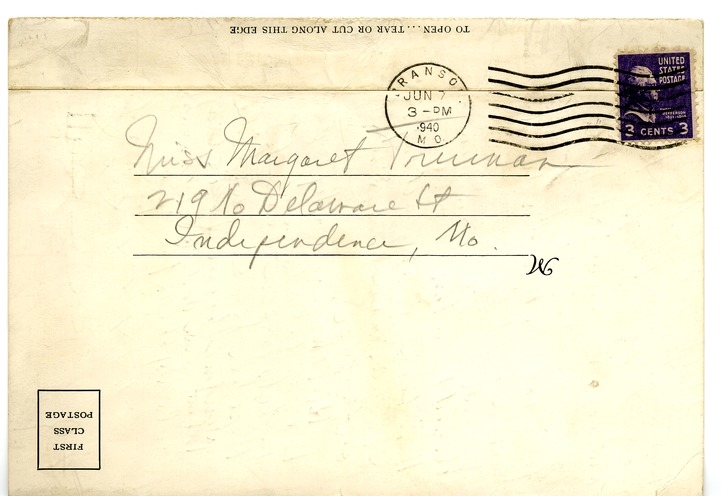 TO OPEN... TEAR OR CUT ALONG THIS EDGE
RANSO
JUN 7
3 - PM
1940
MO
UNITED
STATES
POSTAGE
JEFFERSON
3 CENTS 3
Miss Margaret Truman
219 No Delaware St
Independence, Mo.
FIRST
CLASS
POSTAGE